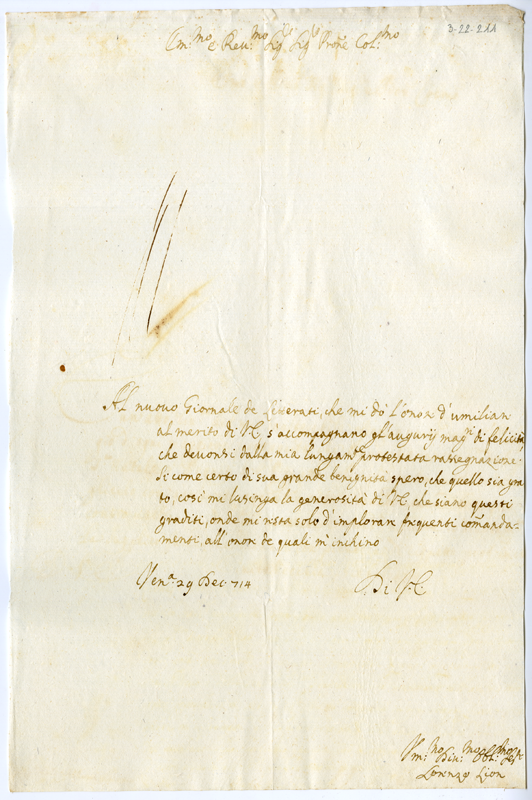 3-22-211
Em:mo e Reu:mo Sig:r Sig:r Prone Col:mo
Al nuouo Giornale de Litterati, che mi dò l'onor d'umiliar
al merito di V.E. s'accompagnano gl'augurij magri di felicità,
che deuonsi dalla mia lungamte protestata rassegnazione.
Si come certo di sua grande benignità spero, che quello sia gra-
to, così mi lusinga la generosità di V.E. che siano questi
graditi, onde mi resta solo d'implorar frequenti comanda-
menti, all'onor de quali m'inchino
Vena. 29 Dec: 714
Di V.E.
Vm:mo Diu:mo Obl:mo Ser
Lorenzo Lion